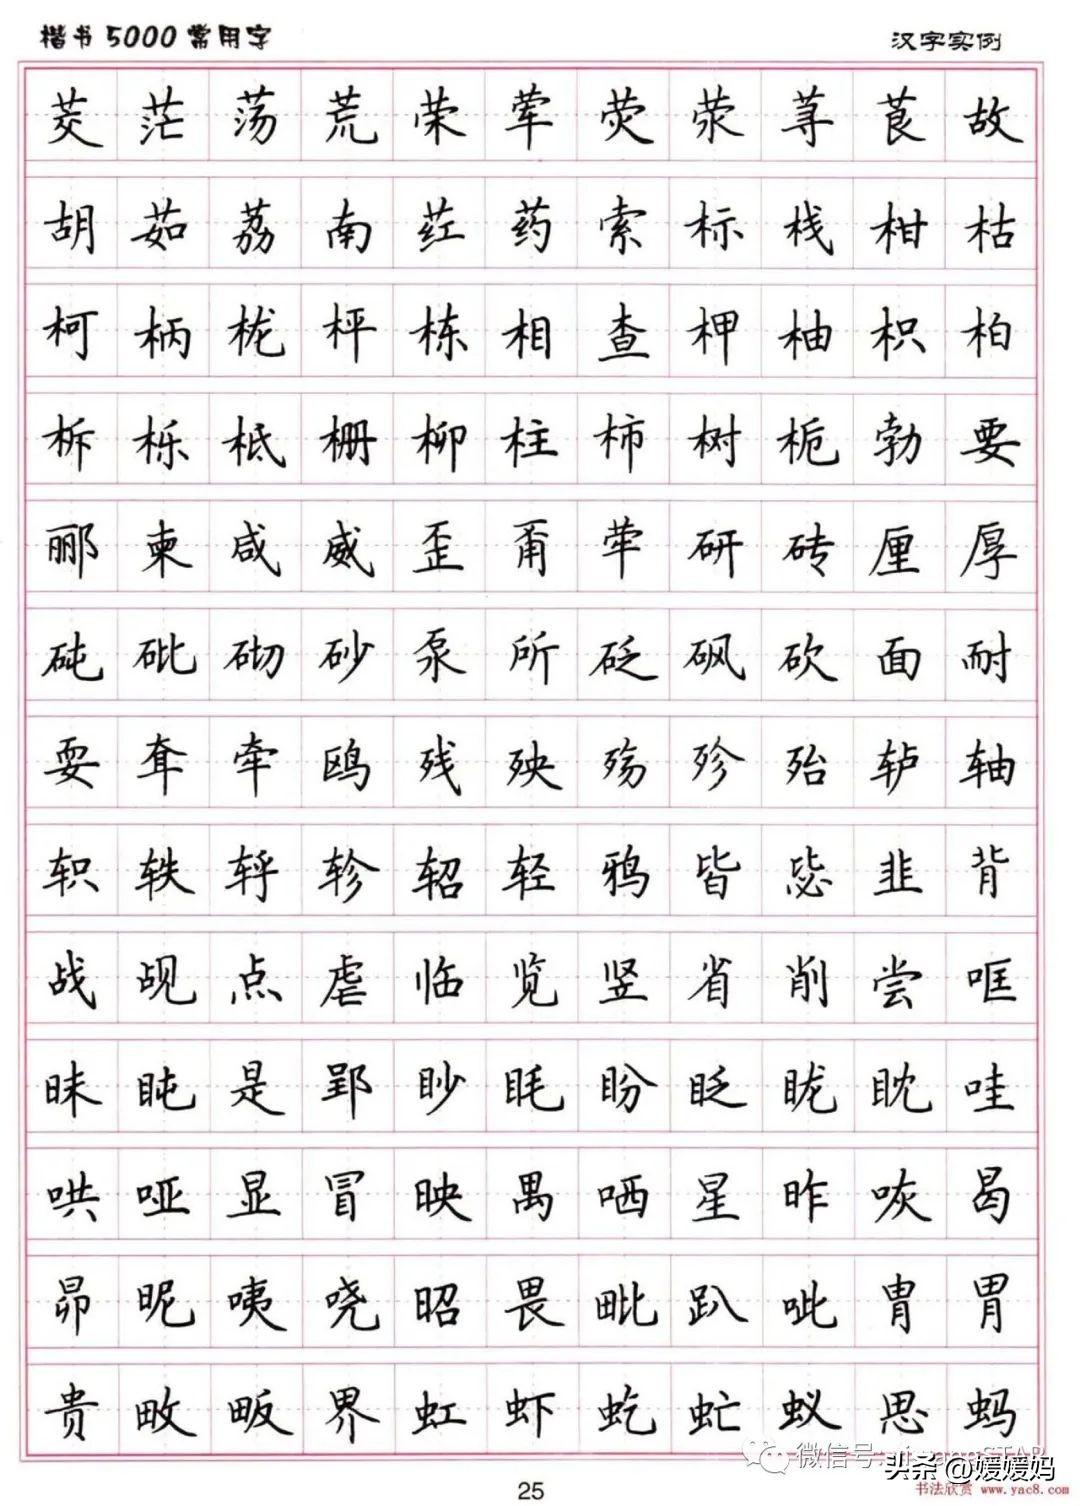 楷书5000常用字 汉字实例
茭 茫 荡 荒 荣 荤 荧 荥 荨 茛 故
胡 茹 荔 南 荭 药 索 标 栈 柑 枯
柯 柄 栊 枰 栋 相 查 柙 柚 枳 柏
柝 栎 柢 栅 柳 柱 柿 树 栀 勃 要
郦 柬 咸 威 歪 甭 荦 研 砖 厘 厚
砘 砒 砌 砂 泵 所 砭 砜 砍 面 耐
耍 耷 牵 鸥 残 殃 殇 殄 殆 轳 轴
轵 轶 轷 轸 轺 轻 鸦 皆 毖 韭 背
战 觇 点 虐 临 览 竖 省 削 尝 哐
昧 盹 是 郢 眇 眊 盼 眨 昽 眈 哇
哄 哑 显 冒 映 禺 哂 星 昨 咴 曷
昴 昵 咦 哓 昭 畏 毗 趴 呲 胄 胃
贵 畋 畈 界 虹 虾 虼 虻 蚁 思 蚂
微信号:
头条@媛媛妈
25
书法欣赏 www.yac8.com